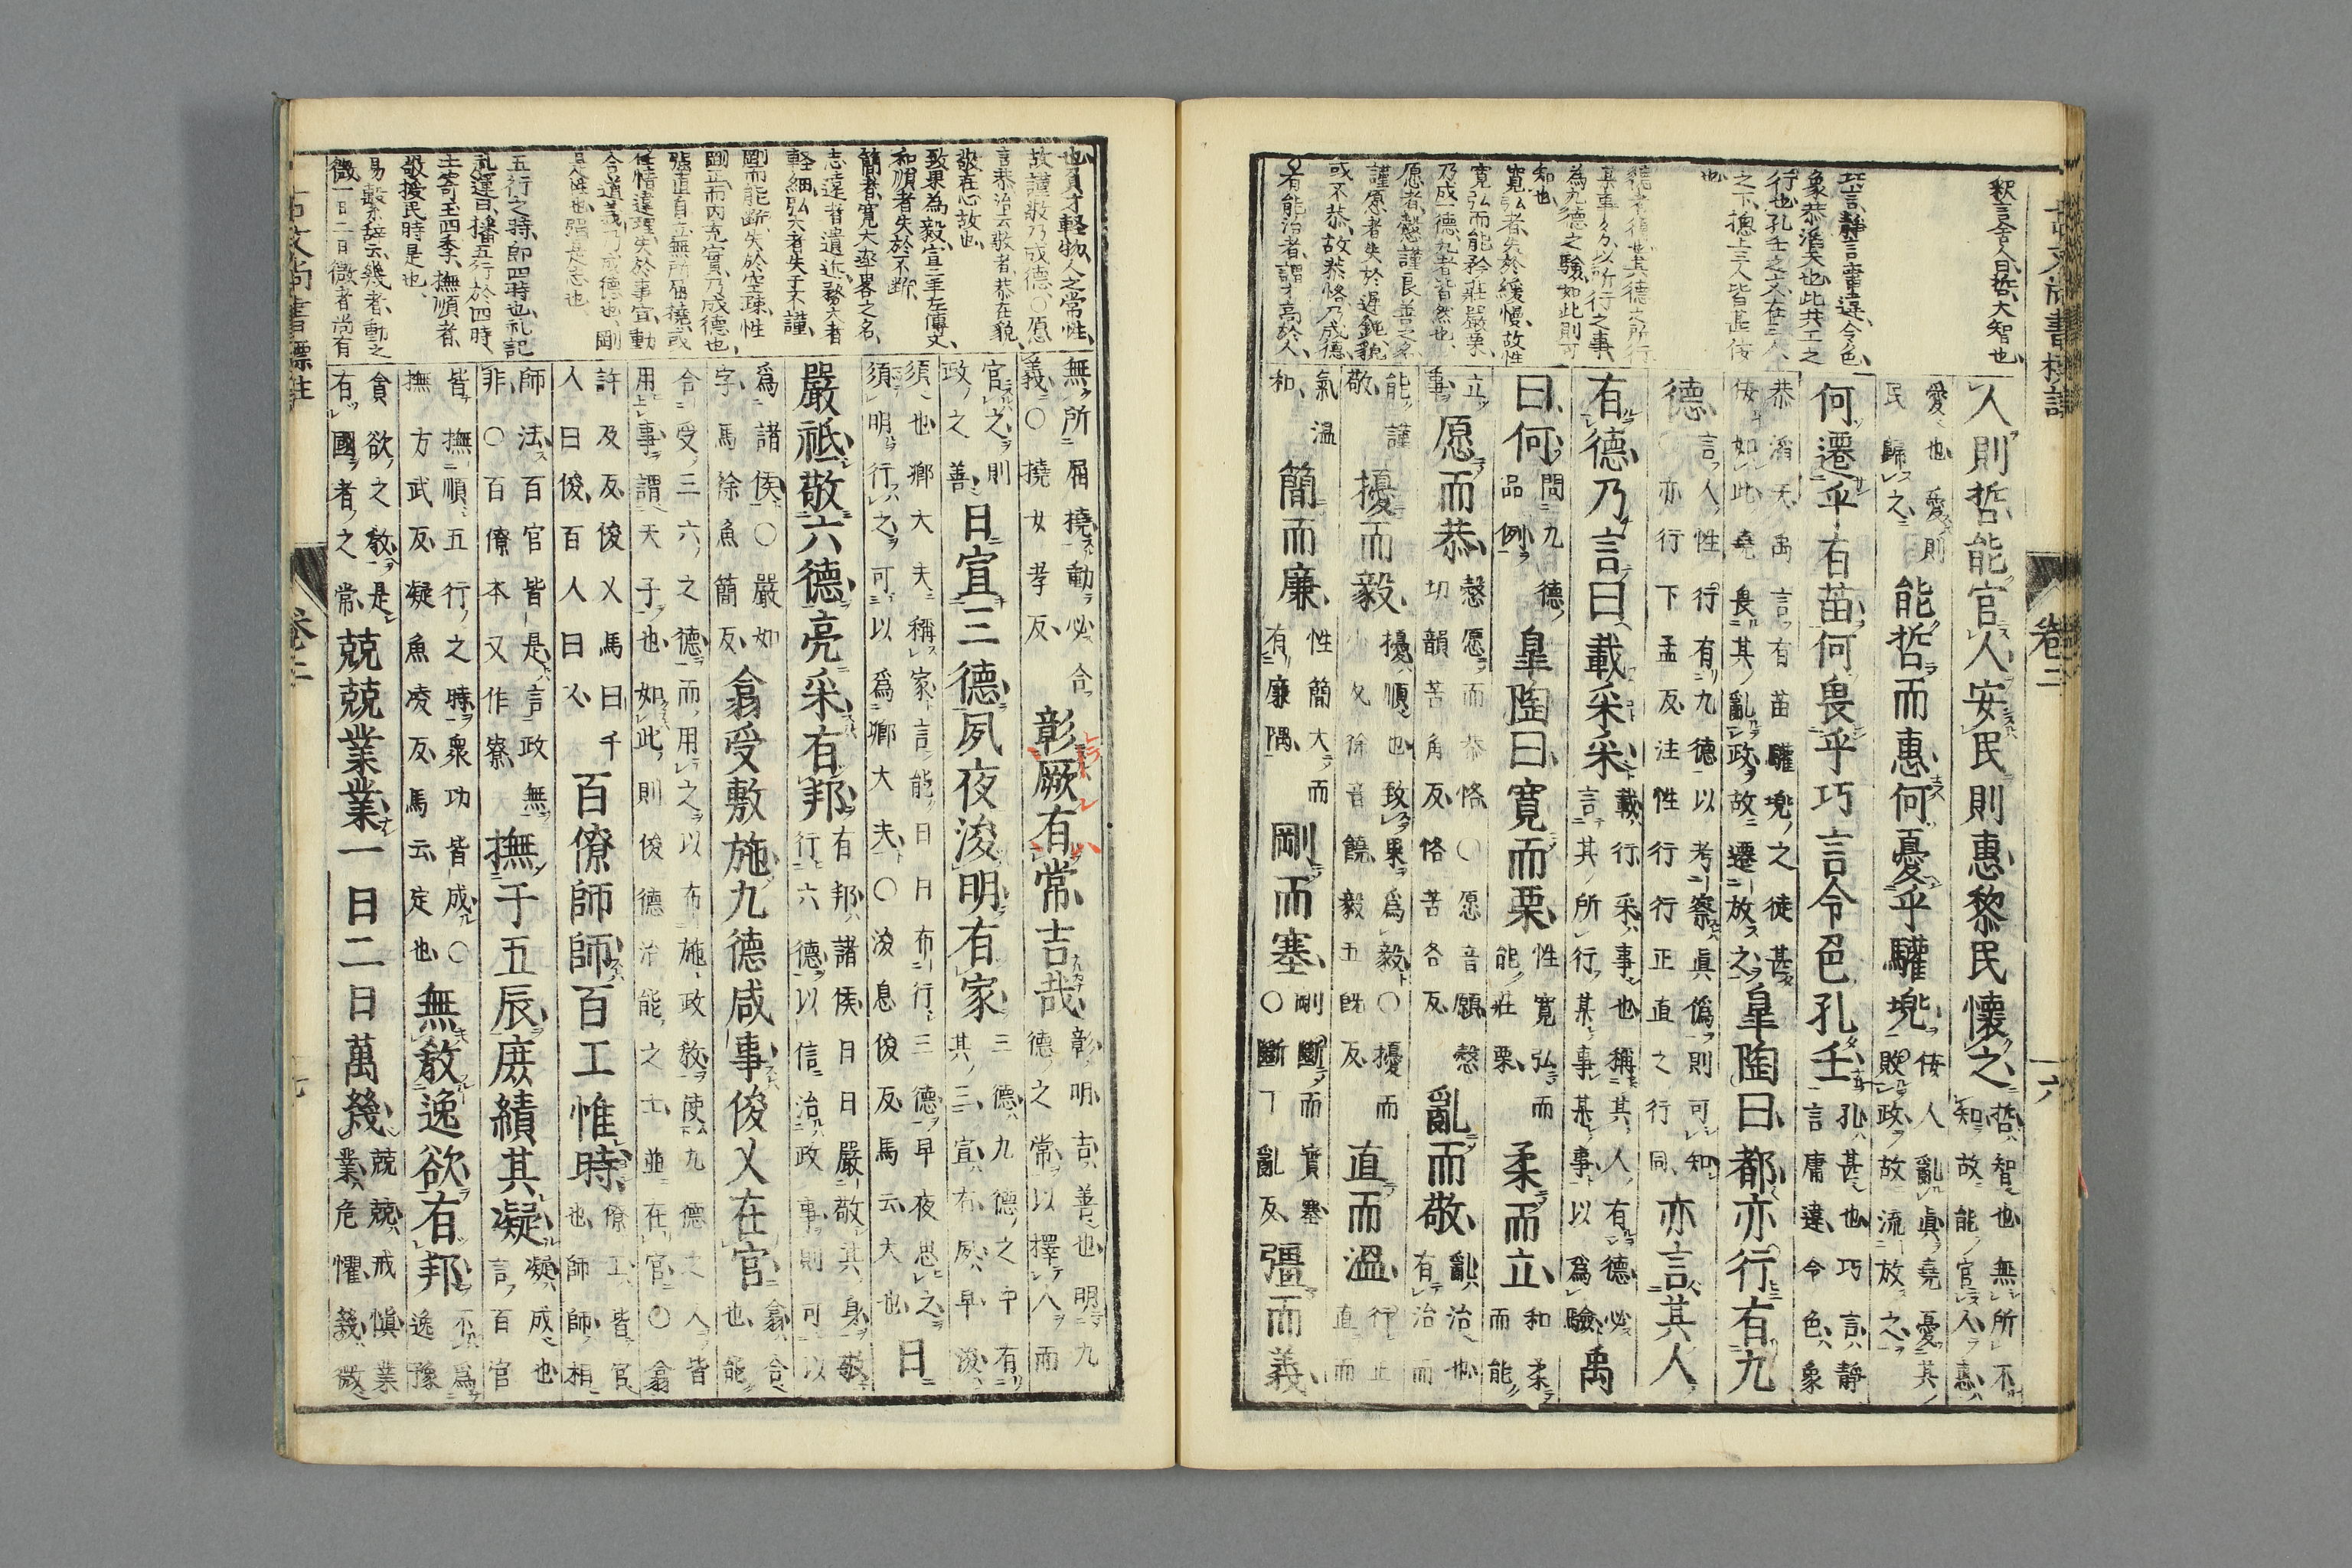 古文尚書標註
卷二
十六
釈言舍人曰哲大智也
巧言靜言庸違令色
象恭滔天也此共工之
行也孔壬之文在三人
之下摠上三人皆甚佞
也
其事々々以所行之事
為九德之驗如此則可
知也
寬弘者失於緩慢故性
寬弘而能矜莊嚴栗
乃成一德九者皆然也
愿者愨謹良善之名
謹愿者失於遲鈍貌
或不恭故恭恪乃成德
有能治者謂才高於人
人則哲能官人安民則惠黎民懷之哲智也無所不
知故能官人惠
愛也愛則
民歸之能哲而惠何憂乎驩兜佞人亂眞堯憂其
敗政故流放之
何遷乎有苗何畏乎巧言令色孔壬孔甚也巧言靜
言庸違令色象
恭滔天禹言有苗驩兜之徒甚
佞如此堯畏其亂政故遷放之皐陶曰都亦行有九
德言人性行有九德以考察眞僞則可知
亦行下孟反注性行行正直之行同亦言其人
有德乃言曰載采采載行采事也稱其人有德必
言其所行某事某事以爲驗禹
曰何問九德
品例皐陶曰寬而栗性寬弘而
能莊栗柔而立和柔
而能
立
事愿而恭愨愿而恭恪○愿音願愨
切韻苦角反恪苦各反亂而敬亂治也
有治而
能謹
敬擾而毅擾順也致果爲毅○擾而
小反徐音饒毅五旣反直而溫行正
直而
氣溫
和簡而廉性簡大而
有廉隅剛而塞剛斷而實塞
○斷丁亂反彊而義
也負才輕物人之常性
故謹敬乃成德○愿
言恭治云敬者恭在貌
敬在心故也
致果為毅宣二年左傳文
和順者失於不斷
簡者寬大率畧之名
志遠者遺近務大者
輕細弘大者失于不謹
剛而能斷失於空疎性
剛正而内充實乃成德也
強直自立無所屈撓或
任情違理失於事宜動
合道義乃成德也剛
是性也強是志也
五行之時即四時也礼記
礼運曰播五行於四時
土寄王四季撫順者
敬授民時是也
易繫辞云幾者動之
微一日二日微者尚有
無所屈撓動必合
義○撓女孝反彰厥有常吉哉彰明吉善也明九
德之常以擇人而
官之則
政之善日宣三德夙夜浚明有家三德九德之中有
其三宣布夙早浚
須也卿大夫稱家言能日日布行三德早夜思之
須明行之可以爲卿大夫○浚息俊反馬云大也日
嚴祗敬六德亮采有邦有邦諸侯日日嚴敬其身敬
行六德以信治政事則可以
爲諸侯○嚴如
字馬徐魚簡反翕受敷施九德咸事俊乂在官翕合
也能
合受三六之德而用之以布施政教使九德之人皆
用事謂天子也如此則俊德治能之士並在官○翕
許及反俊乂馬曰千
人曰俊百人曰乂百僚師師百工惟時僚工皆官
也師師相
師法百官皆是言政無
非○百僚本又作寮撫于五辰庶績其凝凝成也
言百官
皆撫順五行之時衆功皆成○
撫方武反凝魚凌反馬云定也無敎逸欲有邦不爲
逸豫
貪欲之敎是
有國者之常兢兢業業一日二日萬幾兢兢戒愼業
業危懼幾微
古文尚書標註
卷二